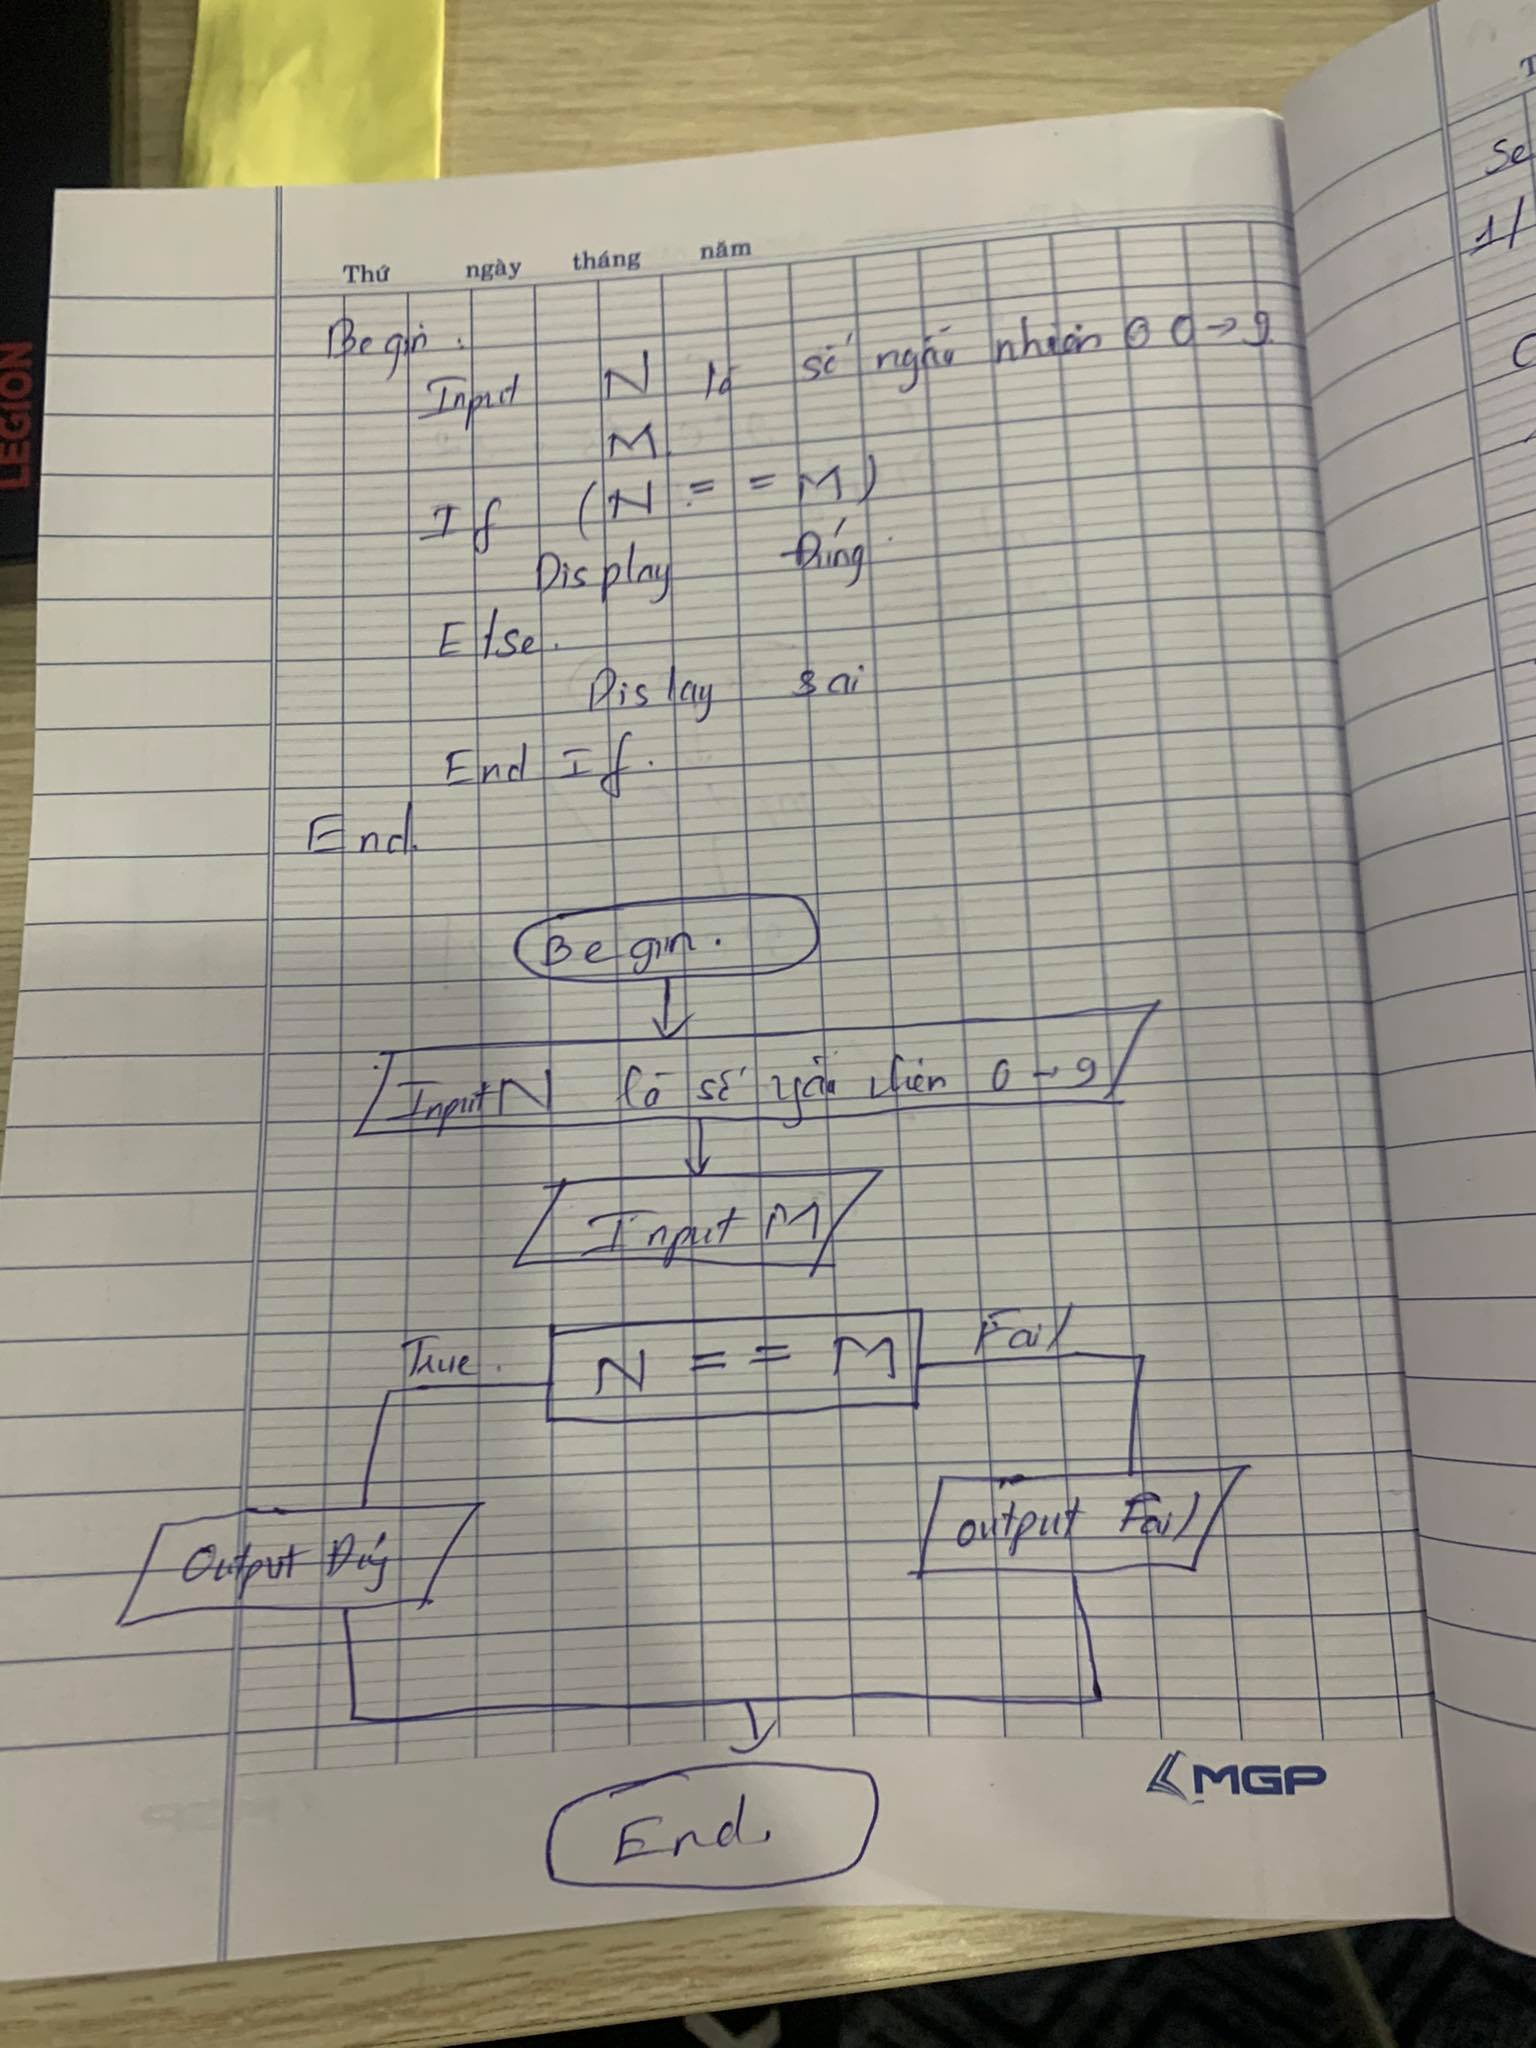 LEGION
Thứ ngày tháng năm
Begin.
Input N là số ngẫu nhiên 0 0 → 9
M
If (N == M)
Display Đúng
Else.
Dislay sai
End If.
End.
Begin.
Input N là số nhiên 0 → 9
Input M
True.
N == M
Fail
Output Đúng
Output Fail
End.
MGP
Se
1/